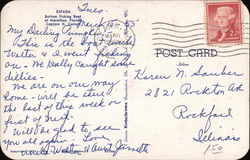 ESPADA
Bottom Fishing Boat
of Marathon, Florida
Captain H.
Tues.
My Darling
This is the boat Uncle
Walter & I went fishing
on - We really caught some
dillies -
We are on our way
home - will be there
the last of this week or
first of next.
Will be glad to see
you all again. Love
Uncle Walter & Aunt
POST CARD
Karen N.
2821 Rockton Av
Rockford
Illinois
150
2¢